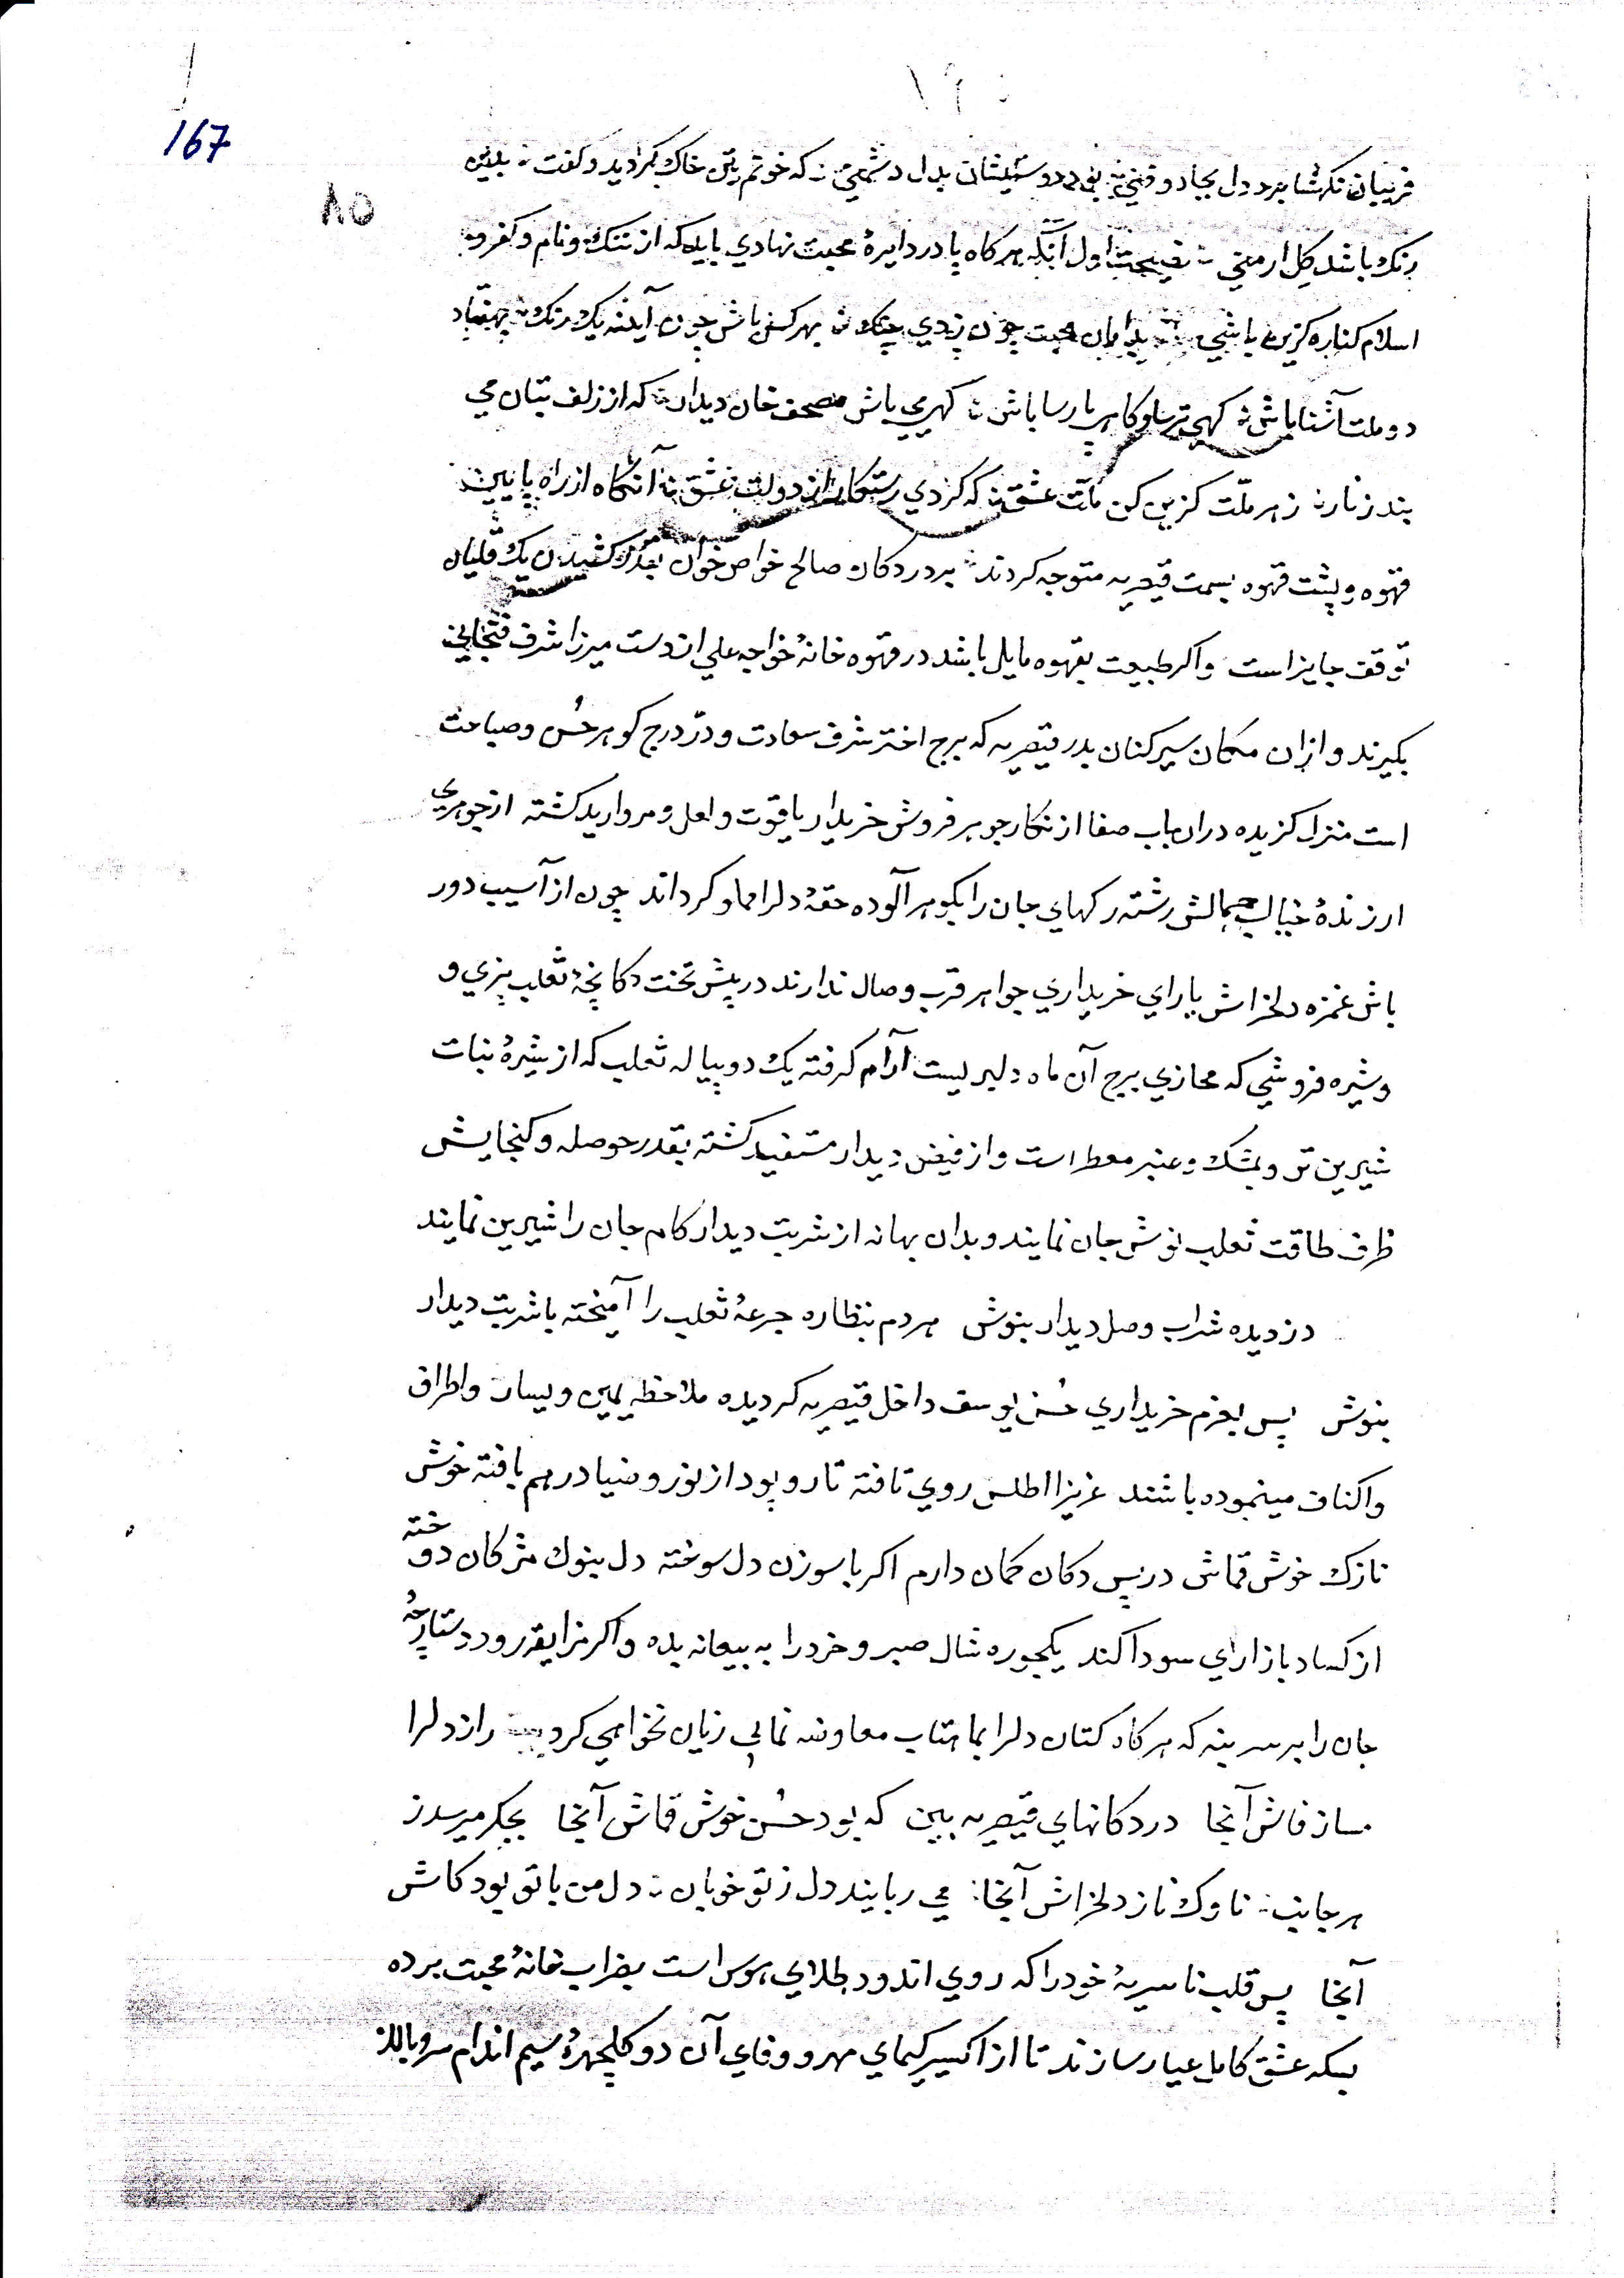 167
۸۵
فریبان نکهشا برد دل بجاد و فنی دوستیشان بدل دشمنی که خونم بتن خاک کردید و کفت بدین
رنک باشد کل ارمنی نصیحت اول آنکه هرکاه پا در دایرهٔ محبت نهادی باید که از ننک و نام و کفر و
اسلام کناره کزین باشی بدامان محبت چون زدی چنک بهر کس باش چون آینه یک رنک بهفتاد
دو ملت آشنا باش کهی ترسا و کاهی پارسا باش کهی می باش مصحف خان دیدار که از زلف بتان می
بند زنار ز هر ملّت کزین کن ملّت عشق که کردی رستکار از دولت عشق آنکاه از راه پایین
قهوه و پشت قهوه بسمت قیصریه متوجه کردند بر در دکان صالح خواص خوان بقدر کشیدن یک قلیان
توقف جایز است واکر طبیعت بقهوه مایل باشد در قهوه خانهٔ خواجه علی از دست میرزا شرف فنجانی
بکیرند و ازان مکان سیر کنان بدر قیصریه که برج اختر شرف سعادت و درّ درج کوهر حُسن و صباحت
است منزل کزیده دران باب صفا از نکار جوهر فروش خریدار یاقوت و لعل و مروارید کشته از جوهری
ارزندهٔ خیال جمالش رشته رکهای جان را بکوهر آلوده حقهٔ دلرا مملو کرداند چون از آسیب دور
باش غمزه دلخراش یارای خریداری جواهر قرب وصال ندارند در پیش تخت دکانچهٔ ثعلب پزی و
و شیره فروشی که محازی برج آن ماه دلبریست آرام کرفته یک دو پیاله ثعلب که از شیرهٔ نبات
شیرین تر و بمشک و عنبر معطر است و از فیض دیدار مستفید کشته بقدر حوصله و کنجایش
ظرف طاقت ثعلب نوش جان نمایند و بدان بهانه از شربت دیدار کام جان را شیرین نمایند
دزدیده شراب وصل دیدار بنوش هردم بنظاره جرعهٔ ثعلب را آمیخته باشربت دیدار
بنوش پس بعزم خریداری حُسن یوسف داخل قیصریه کردیده ملاحظه یمین و یسار و اطراف
و اکناف مینموده باشند عزیزا اطلس روی تافته تار و پود از نور و ضیا درهم بافته خوش
نازک خوش قماش در پس دکان کمان دارم اکر با سوزن دل سوخته دل بنوک مژکان دوخته
از کساد بازارای سودا کند یکجوره شال صبر و خرد را به بیعانه بده و اکر نزایقر رود دستارچهٔ
جان را بر سر بنه که هرکاه کتان دلرا بماهتاب معاوضه نمایی زیان نخواهی کرد راز دلرا
مساز فاش آنجا در دکانهای قیصریه ببین که بود حُسن خوش قماش آنجا بجکر میرسد ز
هر جانب ناوک ناز دلخراش آنجا می ربایند دل ز تو خوبان دل من با تو بود کاش
آنجا پس قلب ناسریهٔ خود را که روی اندود بطلای هوس است بضراب خانهٔ محبت برده
بسکه عشق کامل عیار سازند تا از اکسیر کیمای مهر و وفای آن دو کلچهرهٔ سیم اندام سروبالا ز